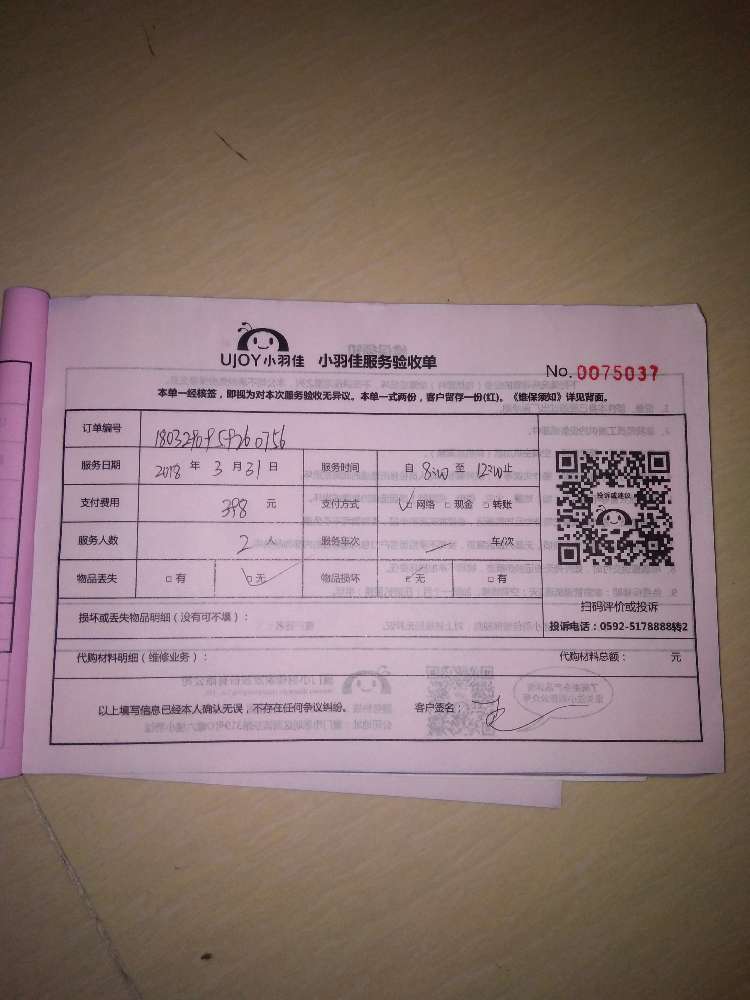 UJOY小羽佳 小羽佳服务验收单
No.0075037
本单一经核签，即视为对本次服务验收无异议。本单一式两份，客户留存一份(红)。《维保须知》详见背面。
订单编号
服务日期 2018 年 3 月 31 日 服务时间 自 8:00 至 12:00 止
支付费用 398 元 支付方式 ✓网络 □现金 □转账
投诉或建议
服务人数 2 人 服务车次 — 车/次
物品丢失 □有 ☑无 物品损坏 ☑无 □有
扫码评价或投诉
损坏或丢失物品明细（没有可不填）：
投诉电话：0592-5178888转2
代购材料明细（维修业务）：
代购材料总额： 元
以上填写信息已经本人确认无误，不存在任何争议纠纷。 客户签名：